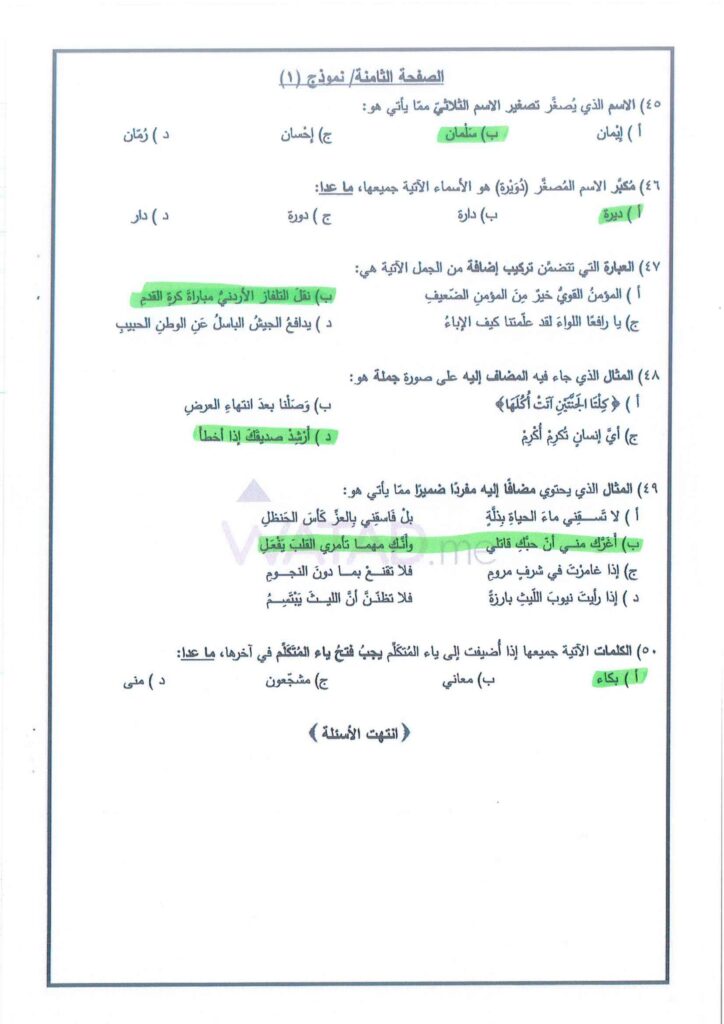 الصفحة الثامنة/ نموذج (١)
٤٥) الاسم الذي يُصغَّر تصغير الاسم الثلاثيّ ممّا يأتي هو:
أ ) إيْمان ب) سَلْمان ج) إحْسان د ) رُمّان
٤٦) مُكبَّر الاسم المُصغَّر (دُوَيْرة) هو الأسماء الآتية جميعها، ما عدا:
أ ) ديرة ب) دارة ج ) دورة د ) دار
٤٧) العبارة التي تتضمَّن تركيب إضافة من الجمل الآتية هي:
أ ) المؤمنُ القويُّ خيرٌ مِنَ المؤمنِ الضّعيفِ ب) نقلَ التلفازُ الأردنيُّ مباراةَ كرةِ القدمِ
ج) يا رافعًا اللواءَ لقد علّمتنا كيف الإباءُ د ) يدافعُ الجيشُ الباسلُ عَنِ الوطنِ الحبيبِ
٤٨) المثال الذي جاء فيه المضاف إليه على صورة جملة هو:
أ ) ﴿ كِلْتَا الْجَنَّتَيْنِ آتَتْ أُكُلَهَا﴾ ب) وَصَلْنا بعدَ انتهاءِ العرضِ
ج) أيَّ إنسانٍ تُكرِمْ أُكْرِمْ د ) أرْشِدْ صديقَكَ إذا أخطأ
٤٩) المثال الذي يحتوي مضافًا إليه مفردًا ضميرًا ممّا يأتي هو:
أ ) لا تَسـقِني ماءَ الحياةِ بِذلّةٍ بلْ فَاسقني بِالعزِّ كَأسَ الحَنظلِ
ب) أغَرّكِ مني أنّ حبّكِ قاتلي وأنّكِ مهمـا تأمري القلبَ يَفْعَلِ
ج) إذا غامرْتَ في شرفٍ مرومٍ فلا تقنـعْ بمـا دونَ النجـومِ
د ) إذا رأيتَ نيوبَ اللّيثِ بارزةً فلا تظنَـنَّ أنَّ الليـثَ يَبْتَسِـمُ
٥٠) الكلمات الآتية جميعها إذا أُضيفت إلى ياء المُتكلِّم يجبُ فتحُ ياء المُتَكَلِّم في آخرها، ما عدا:
أ ) بكاء ب) معاني ج) مشجّعون د ) منى
﴿ انتهت الأسئلة ﴾
WATAD.me